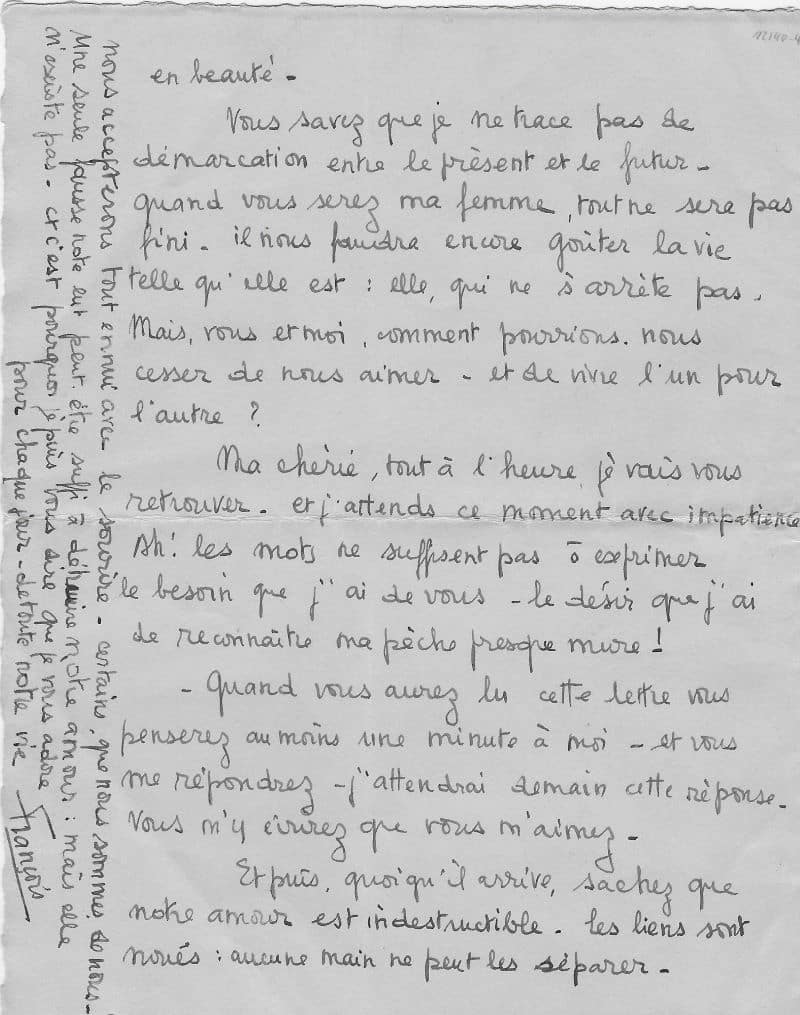 12140-4
en beauté -
Vous savez que je ne trace pas de
démarcation entre le présent et le futur -
quand vous serez ma femme, tout ne sera pas
fini - il nous faudra encore goûter la vie
telle qu'elle est : elle, qui ne s'arrête pas.
Mais, vous et moi, comment pourrions-nous
cesser de nous aimer - et de vivre l'un pour
l'autre ?
Ma chérie, tout à l'heure, je vais vous
retrouver - et j'attends ce moment avec impatience
Ah! les mots ne suffisent pas à exprimer
le besoin que j'ai de vous - le désir que j'ai
de reconnaître ma pêche presque mure !
- Quand vous aurez lu cette lettre vous
penserez au moins une minute à moi - et vous
me répondrez - j'attendrai demain cette réponse.
Vous m'y écrirez que vous m'aimez -
Et puis, quoiqu'il arrive, sachez que
notre amour est indestructible. les liens sont
noués : aucune main ne peut les séparer -
nous accepterons tout ennui avec le sourire - certains, que nous sommes de nous -
Une seule fausse note eut peut être suffi à détruire notre amour : mais elle
n'existe pas - et c'est pourquoi je puis vous dire que je vous adore
pour chaque jour - de toute notre vie
François